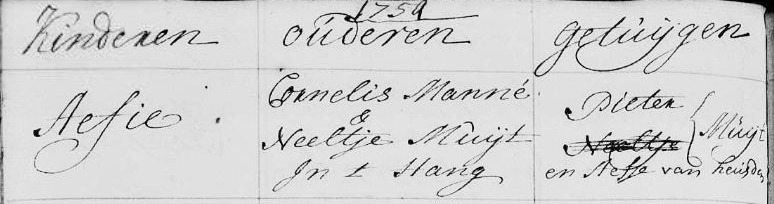 1759
Kinderen ouderen getuijgen
Aefie.
Cornelis Manné.
&
Neeltje Muijt
In t Hang
Pieter
Neeltje } Muijt
en Aefje van heusden